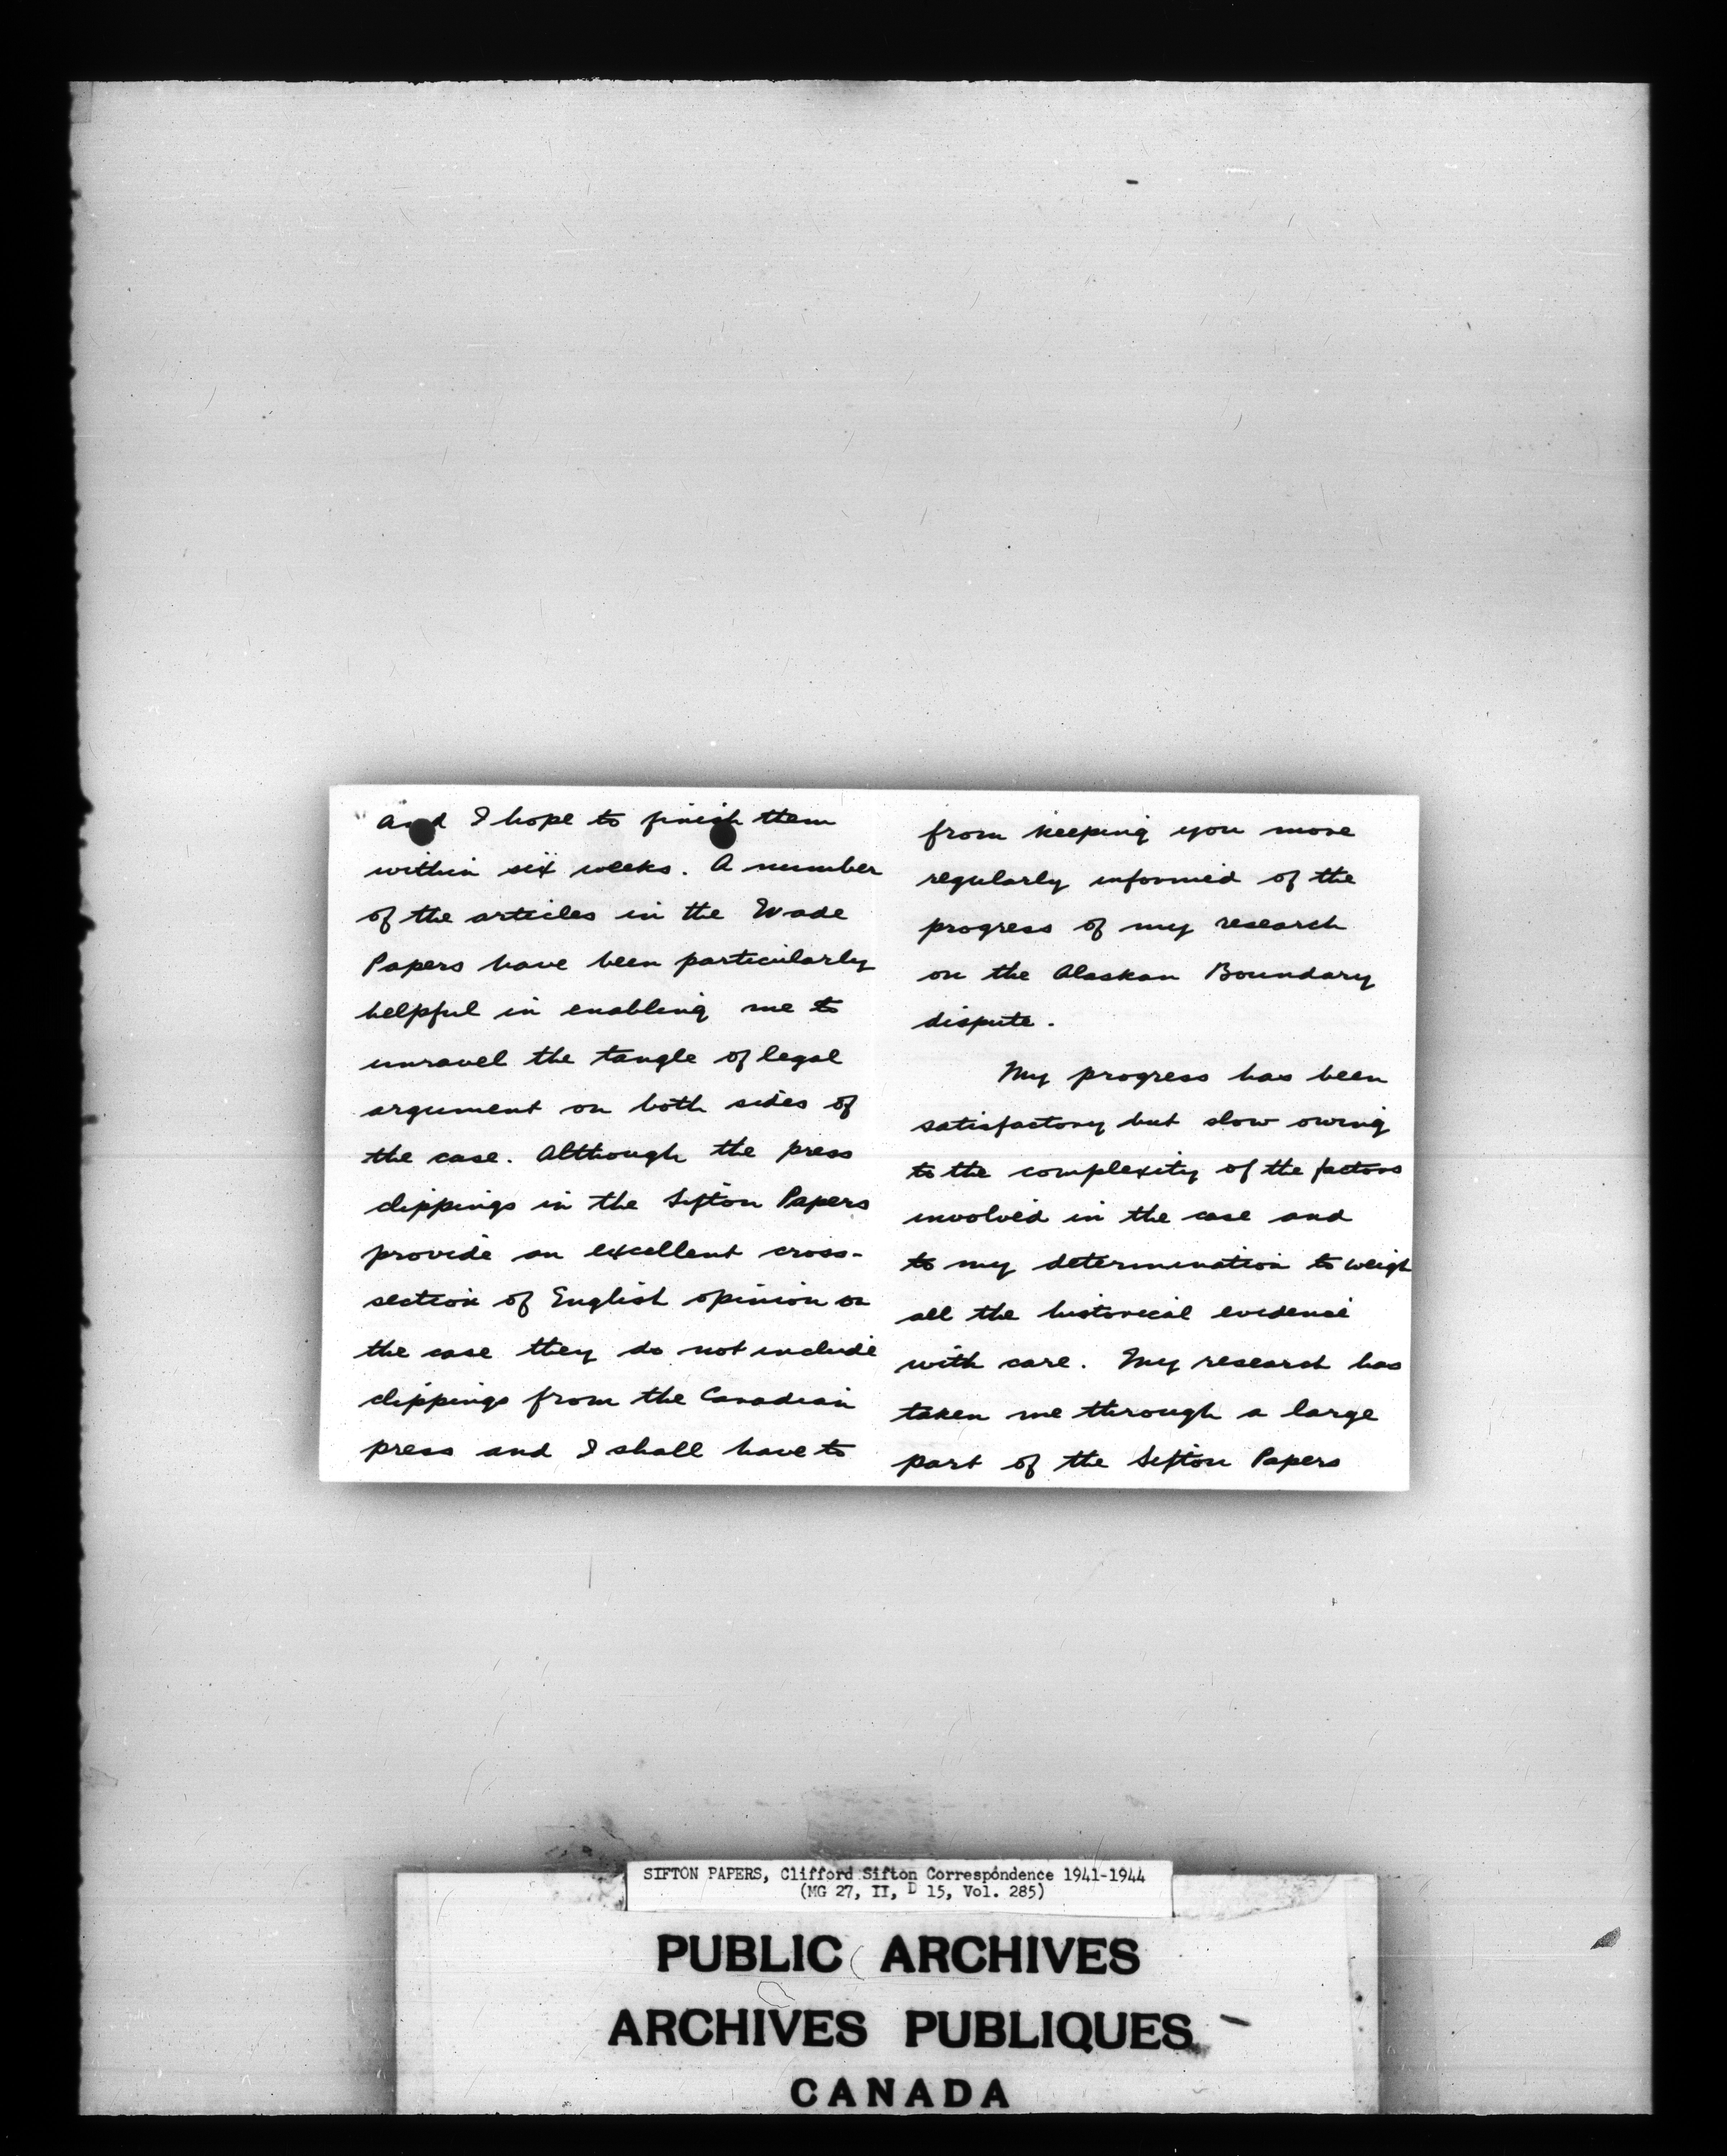 and I hope to finish them
within six weeks. A number
of the articles in the Wade
Papers have been particularly
helpful in enabling me to
unravel the tangle of legal
argument on both sides of
the case. Although the press
clippings in the Sifton Papers
provide an excellent cross-
section of English opinion on
the case they do not include
clippings from the Canadian
press and I shall have to
from keeping you more
regularly informed of the
progress of my research
on the Alaskan Boundary
dispute.
My progress has been
satisfactory but slow owing
to the complexity of the factors
involved in the case and
to my determination to weigh
all the historical evidence
with care. My research has
taken me through a large
part of the Sifton Papers
SIFTON PAPERS, Clifford Sifton Correspondence 1941-1944
(MG 27, II, D 15, Vol. 285)
PUBLIC ARCHIVES
ARCHIVES PUBLIQUES
CANADA